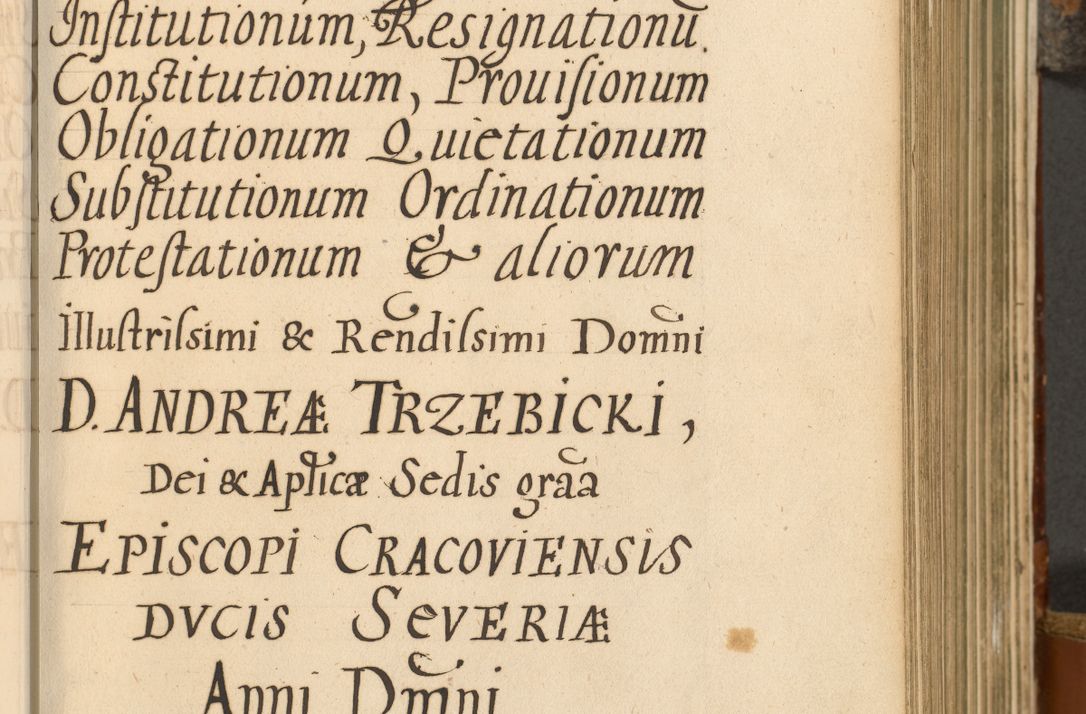 Inſtitutionum, Resignationū.
Conſtitutionum, Prouiſionum
Obligationum Quietationum
Subſtitutionum Ordinationum
Proteſtationum & aliorum
Illuſtriſsimi & Rendiſsimi Domni
D. ANDREÆ TRZEBICKI,
Dei & Aplicæ Sedis graa
EPISCOPI CRACOVIENSIS
DVCIS SEVERIÆ
Anni Dmni